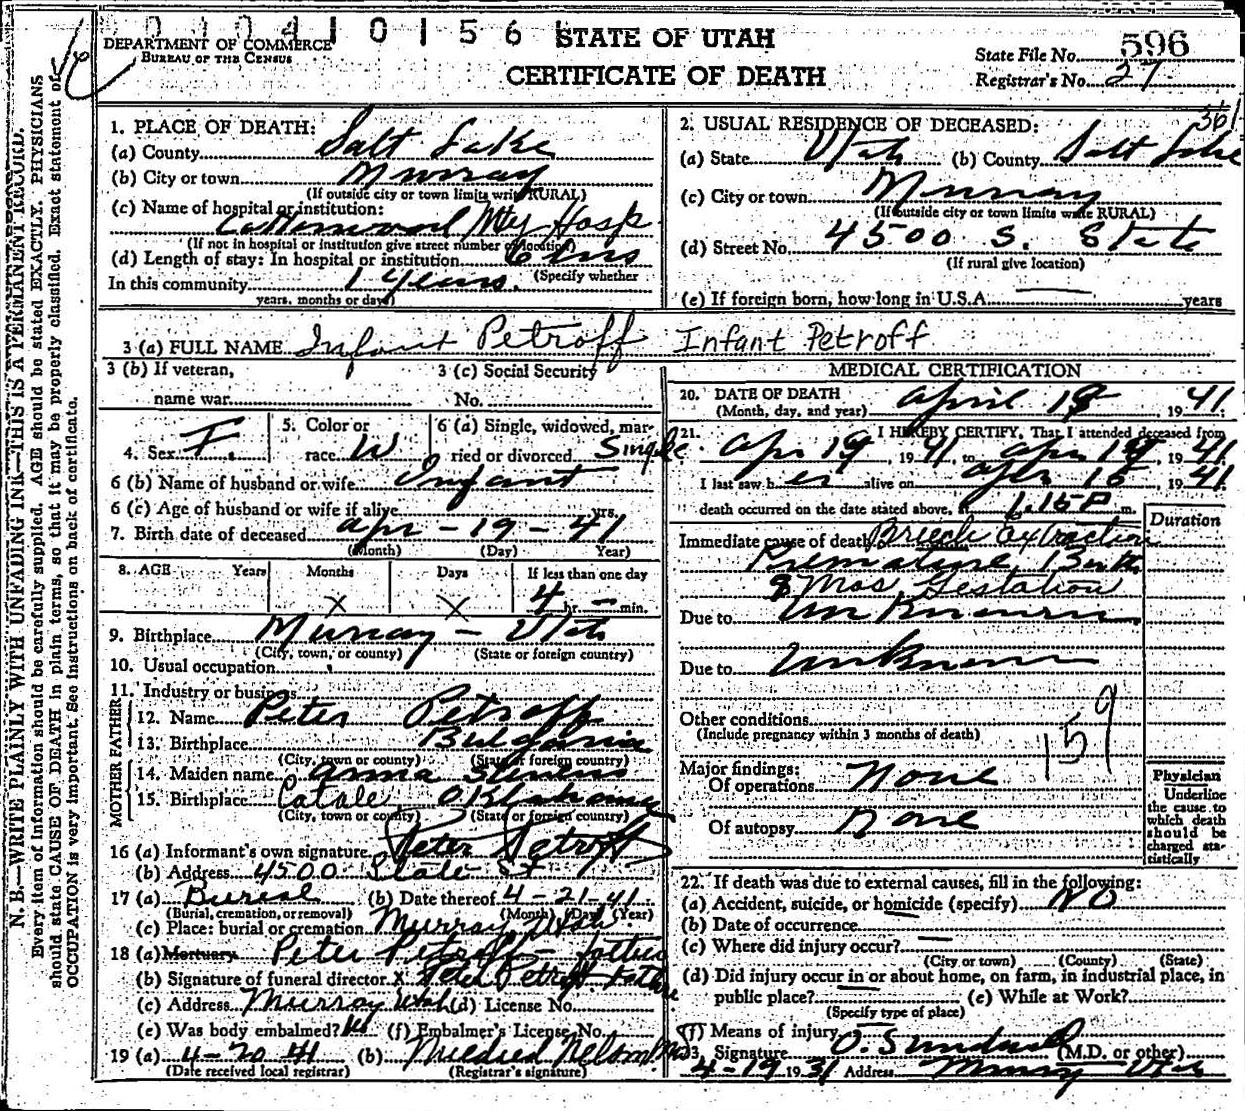 0 0 4 1 0 1 5 6 1
STATE OF UTAH
CERTIFICATE OF DEATH
DEPARTMENT OF COMMERCE
BUREAU OF THE CENSUS
State File No. 596
Registrar's No. 27
361
N. B.—WRITE PLAINLY WITH UNFADING INK—THIS IS A PERMANENT RECORD.
Every item of information should be carefully supplied. AGE should be stated EXACTLY. PHYSICIANS
should state CAUSE OF DEATH in plain terms, so that it may be properly classified. Exact statement of
OCCUPATION is very important. See instructions on back of certificate.
1. PLACE OF DEATH:
(a) County Salt Lake
(b) City or town Murray
(If outside city or town limits write RURAL)
(c) Name of hospital or institution:
Cottonwood Mty Hosp
(If not in hospital or institution give street number or location)
(d) Length of stay: In hospital or institution 6 hrs
(Specify whether
In this community 1 years.
years, months or days)
2. USUAL RESIDENCE OF DECEASED:
(a) State Utah (b) County Salt Lake
(c) City or town Murray
(If outside city or town limits write RURAL)
(d) Street No. 4500 S. State
(If rural give location)
(e) If foreign born, how long in U.S.A. — years
3 (a) FULL NAME Infant Petroff Infant Petroff
3 (b) If veteran,
name war
3 (c) Social Security
No.
4. Sex F.
5. Color or
race W
6 (a) Single, widowed, mar-
ried or divorced Single
6 (b) Name of husband or wife Infant
6 (c) Age of husband or wife if alive yrs.
7. Birth date of deceased Apr - 19 - 41
(Month) (Day) Year)
8. AGE Years Months Days If less than one day
X X 4 hr. — min.
9. Birthplace Murray - Utah
(City, town, or county) (State or foreign country)
10. Usual occupation
11. Industry or business
FATHER
12. Name Peter Petroff
13. Birthplace Bulgaria
(City, town or county) (State or foreign country)
MOTHER
14. Maiden name Anna Stevens
15. Birthplace Catale Oklahoma
(City, town or county) (State or foreign country)
16 (a) Informant's own signature Peter Petroff
(b) Address 4500 State St
17 (a) Burial (b) Date thereof 4-21-41
(Burial, cremation, or removal) (Month) (Day) (Year)
(c) Place: burial or cremation Murray, Utah
18 (a) Mortuary Peter Petroff - father
(b) Signature of funeral director X Peter Petroff Father
(c) Address Murray Utah (d) License No.
(e) Was body embalmed? (f) Embalmer's License No.
19 (a) 4-20 41 (b) Mildred Nelson
(Date received local registrar) (Registrar's signature)
MEDICAL CERTIFICATION
20. DATE OF DEATH
(Month, day, and year) April 19, 1941.
21. I HEREBY CERTIFY, That I attended deceased from
Apr 19, 1941, to Apr 19, 1941
I last saw her alive on Apr 1941
death occurred on the date stated above, at 1.15 P m.
Duration
Immediate cause of death Breech Extraction
Premature Birth
8 Mos Gestation
Due to Unknown
Due to Unknown
Other conditions
(Include pregnancy within 3 months of death)
159
Major findings:
Of operations None
Of autopsy None
Physician
Underline
the cause to
which death
should be
charged sta-
tistically
22. If death was due to external causes, fill in the following:
(a) Accident, suicide, or homicide (specify) NO
(b) Date of occurrence
(c) Where did injury occur? —
(City or town) (County) (State)
(d) Did injury occur in or about home, on farm, in industrial place, in
public place? (e) While at Work?
(Specify type of place)
(f) Means of injury
23. Signature (M.D. or other)
4-19 1931 Address Murray Utah